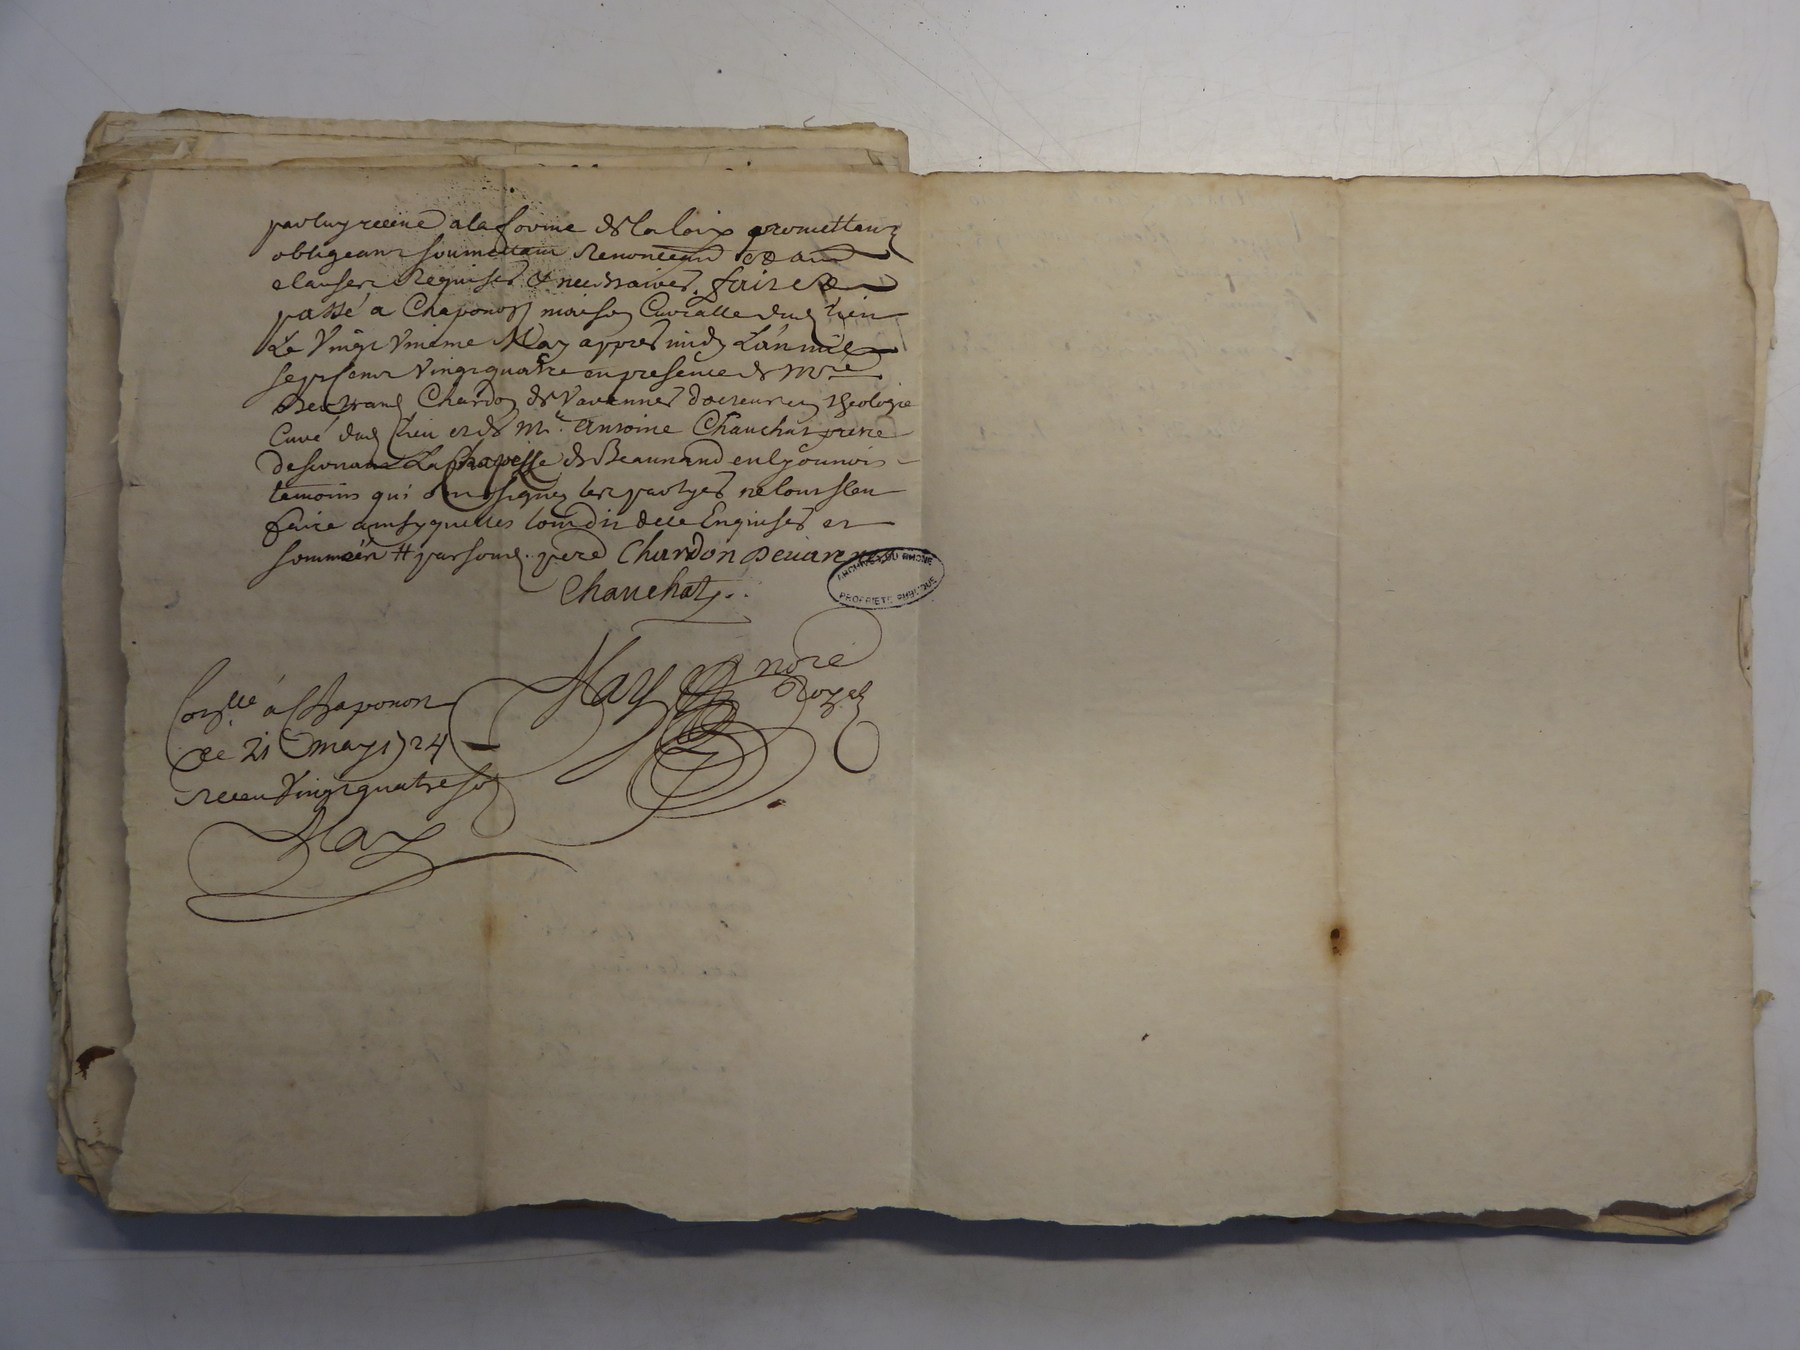 par luy receue a la forme de la loix promettans
obligeans soumettans Renonceans et aud
clauses Requises & necessaires. fait &
passé a Chaponost maison Curialle dud lieu
Le Vingt Unieme May appres midy L'an mil
sept cent Vingt quattre en presence de Mre
Bertrand Chardon de Vavennes docteur en theologie
Curé dud lieu et de Mr. Antoine Chauchat pretre
desservant La Chapelle de Beaunand en lyonnois
temoins qui ont signez les partyes ne lont sceu
faire
somméés # par soud. pere Chardon Devarenne
Chauchat
May nore
Royal
Conllé à Chaponost
le 21 may 1724
Receu Vingt quatre sols
May
ARCHIVES DU RHONE
PROPRIETE PUBLIQUE